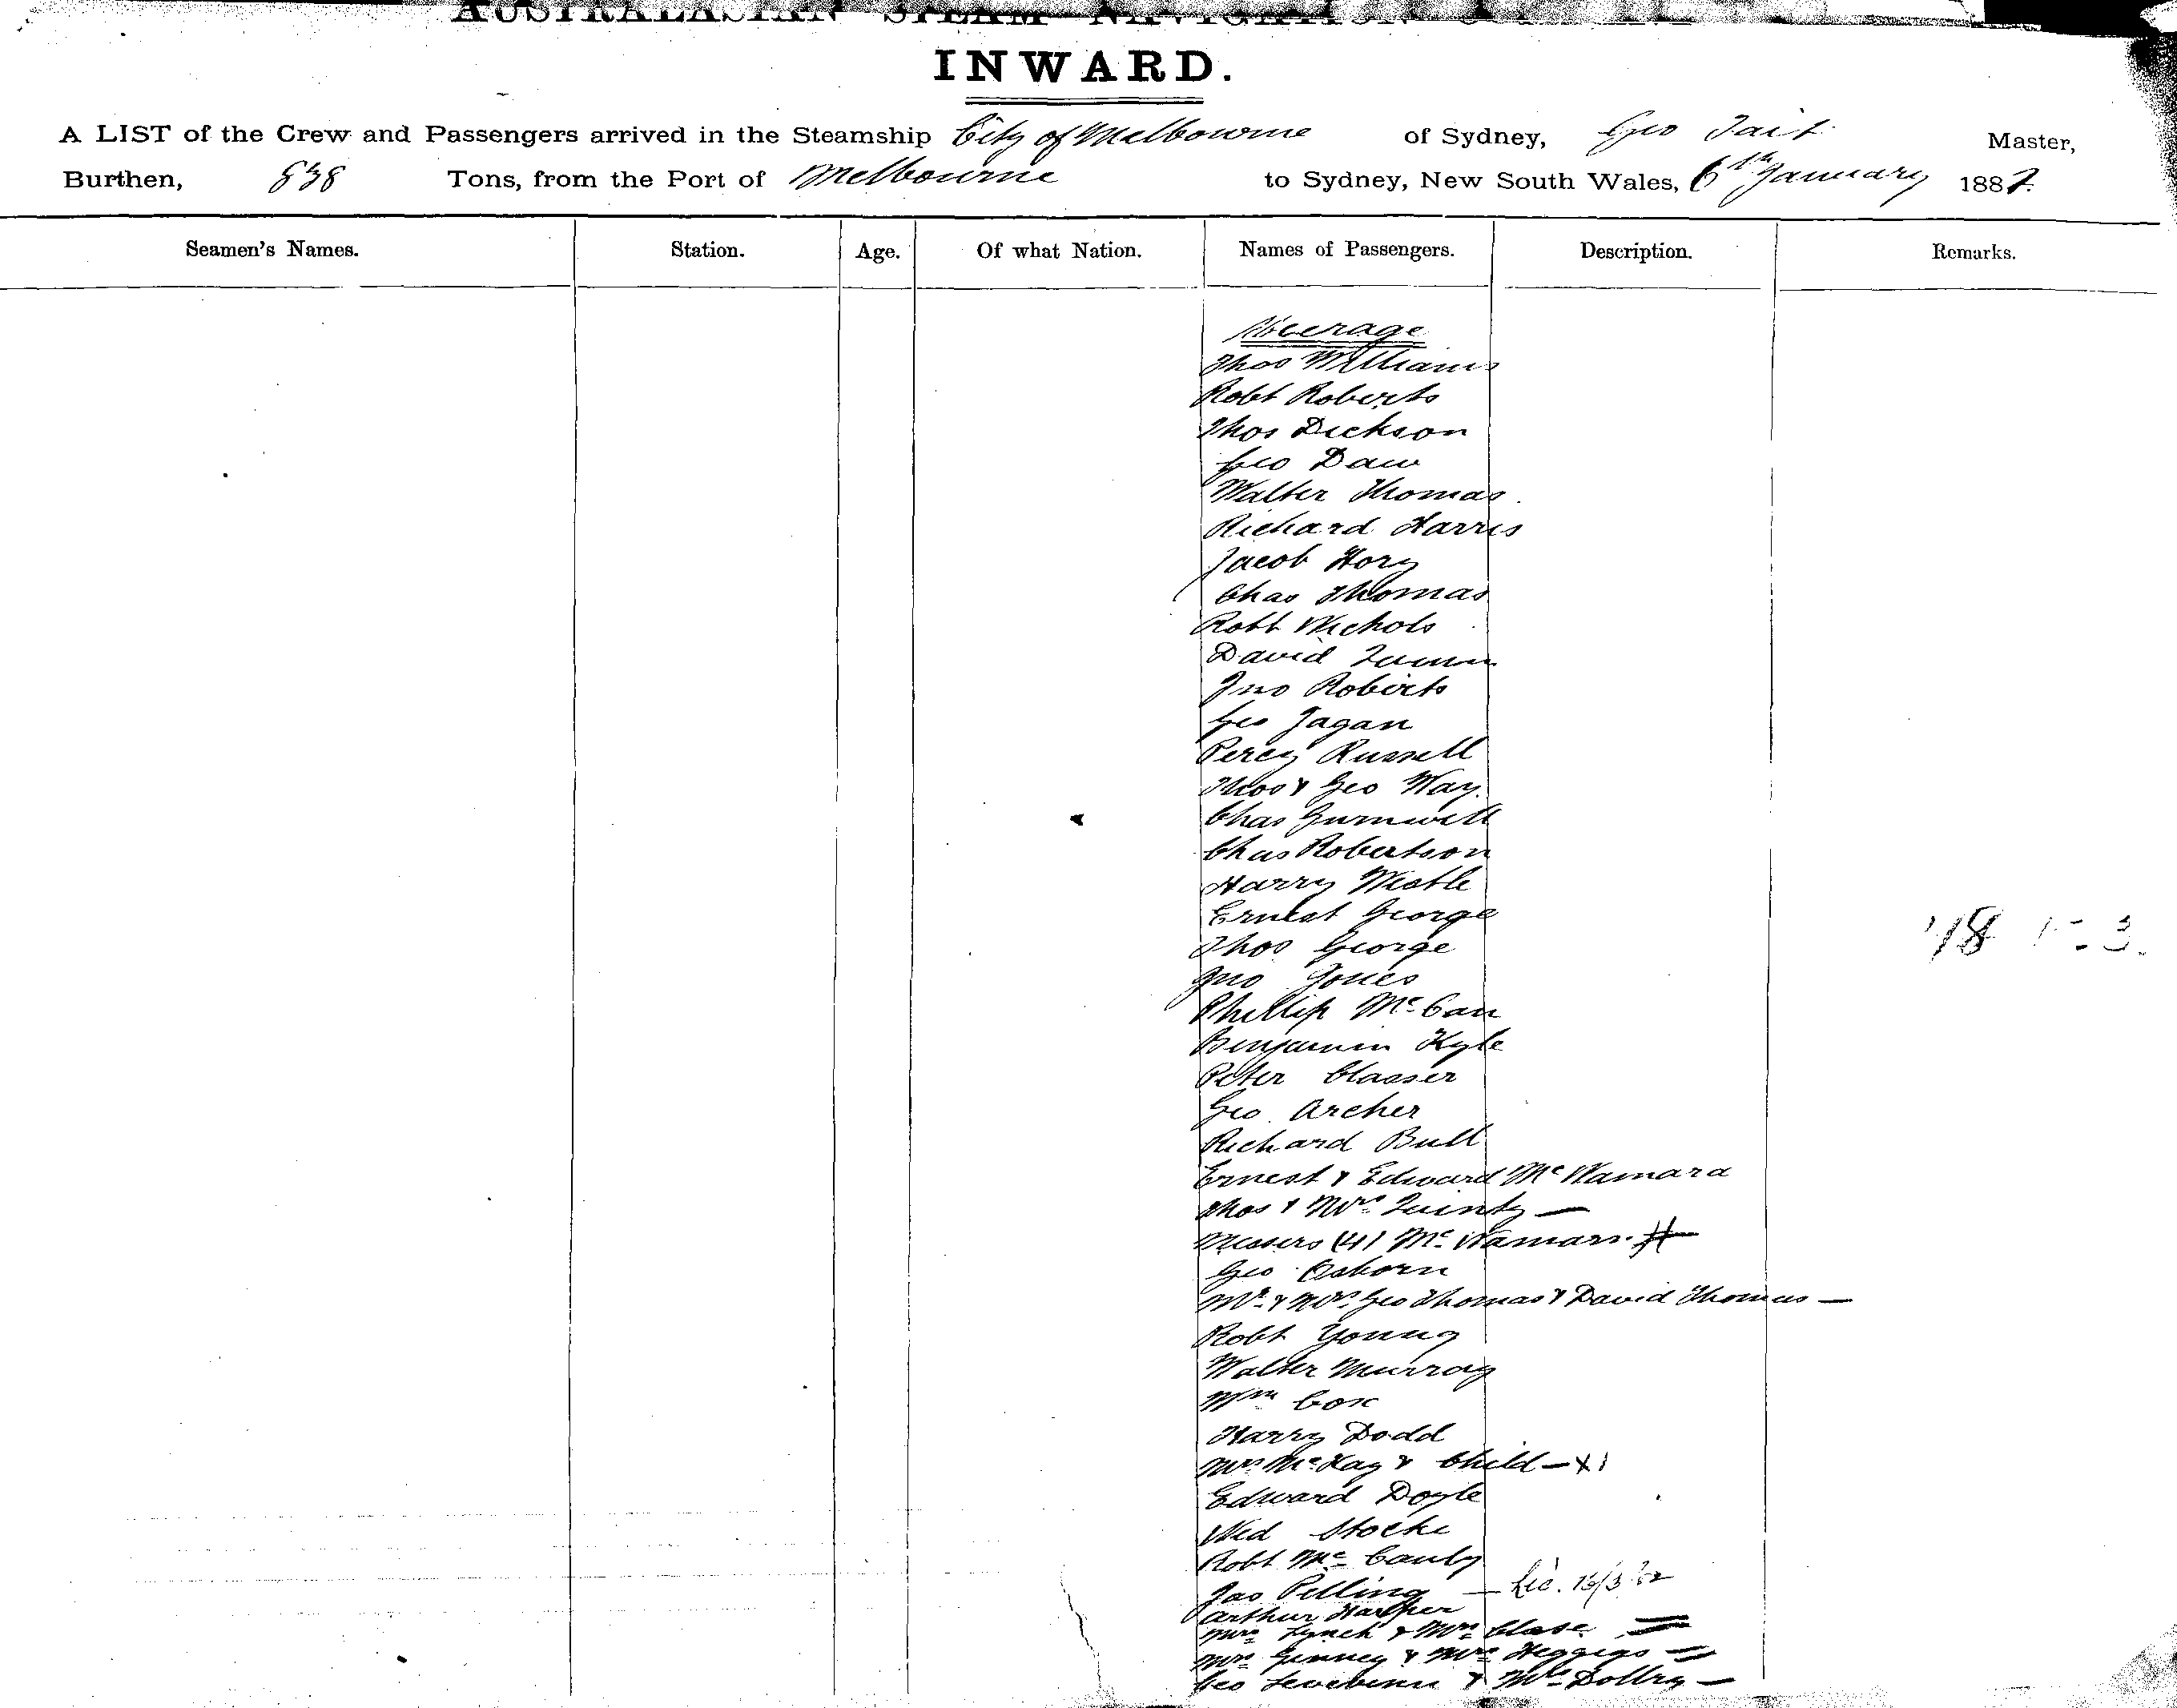 AUSTRALASIAN STEAM NAVIGATION
INWARD.
A LIST of the Crew and Passengers arrived in the Steamship City of Melbourne of Sydney, Geo Tait Master,
Burthen, 838 Tons, from the Port of Melbourne to Sydney, New South Wales, 6th January 1887.
Seamen's Names. Station. Age. Of what Nation. Names of Passengers. Description. Remarks.
Steerage
Thos Williams
Robt Roberts
Thos Dickson
Geo Daw
Walter Thomas
Richard Harris
Jacob Hory
Chas Thomas
Robt Nichols
David
Jno Roberts
Geo Jagan
Percy Russell
Thos & Geo Way
Chas
Chas Robertson
Harry
Ernest George
Thos George
Jno Jones
Phillip McCan
Benjamin Kyle
Peter Classer
Geo Archer
Richard Bull
Ernest & Edward McNamara
Thos & Mrs Quinty —
Messers (4) McNamara
Geo Osborn
Mr & Mrs Geo Thomas & David Thomas —
Robt Young
Walter Murray
Wm Cox
Harry Dodd
Mrs McKay & Child — x1
Edward Doyle
Ned Stocke
Robt McCauly
Jas Pilling —
Arthur Harper
Mrs Lynch & Mrs Clase
Mrs Ginney & Mrs Heggigs
Geo & Mrs Dollry —